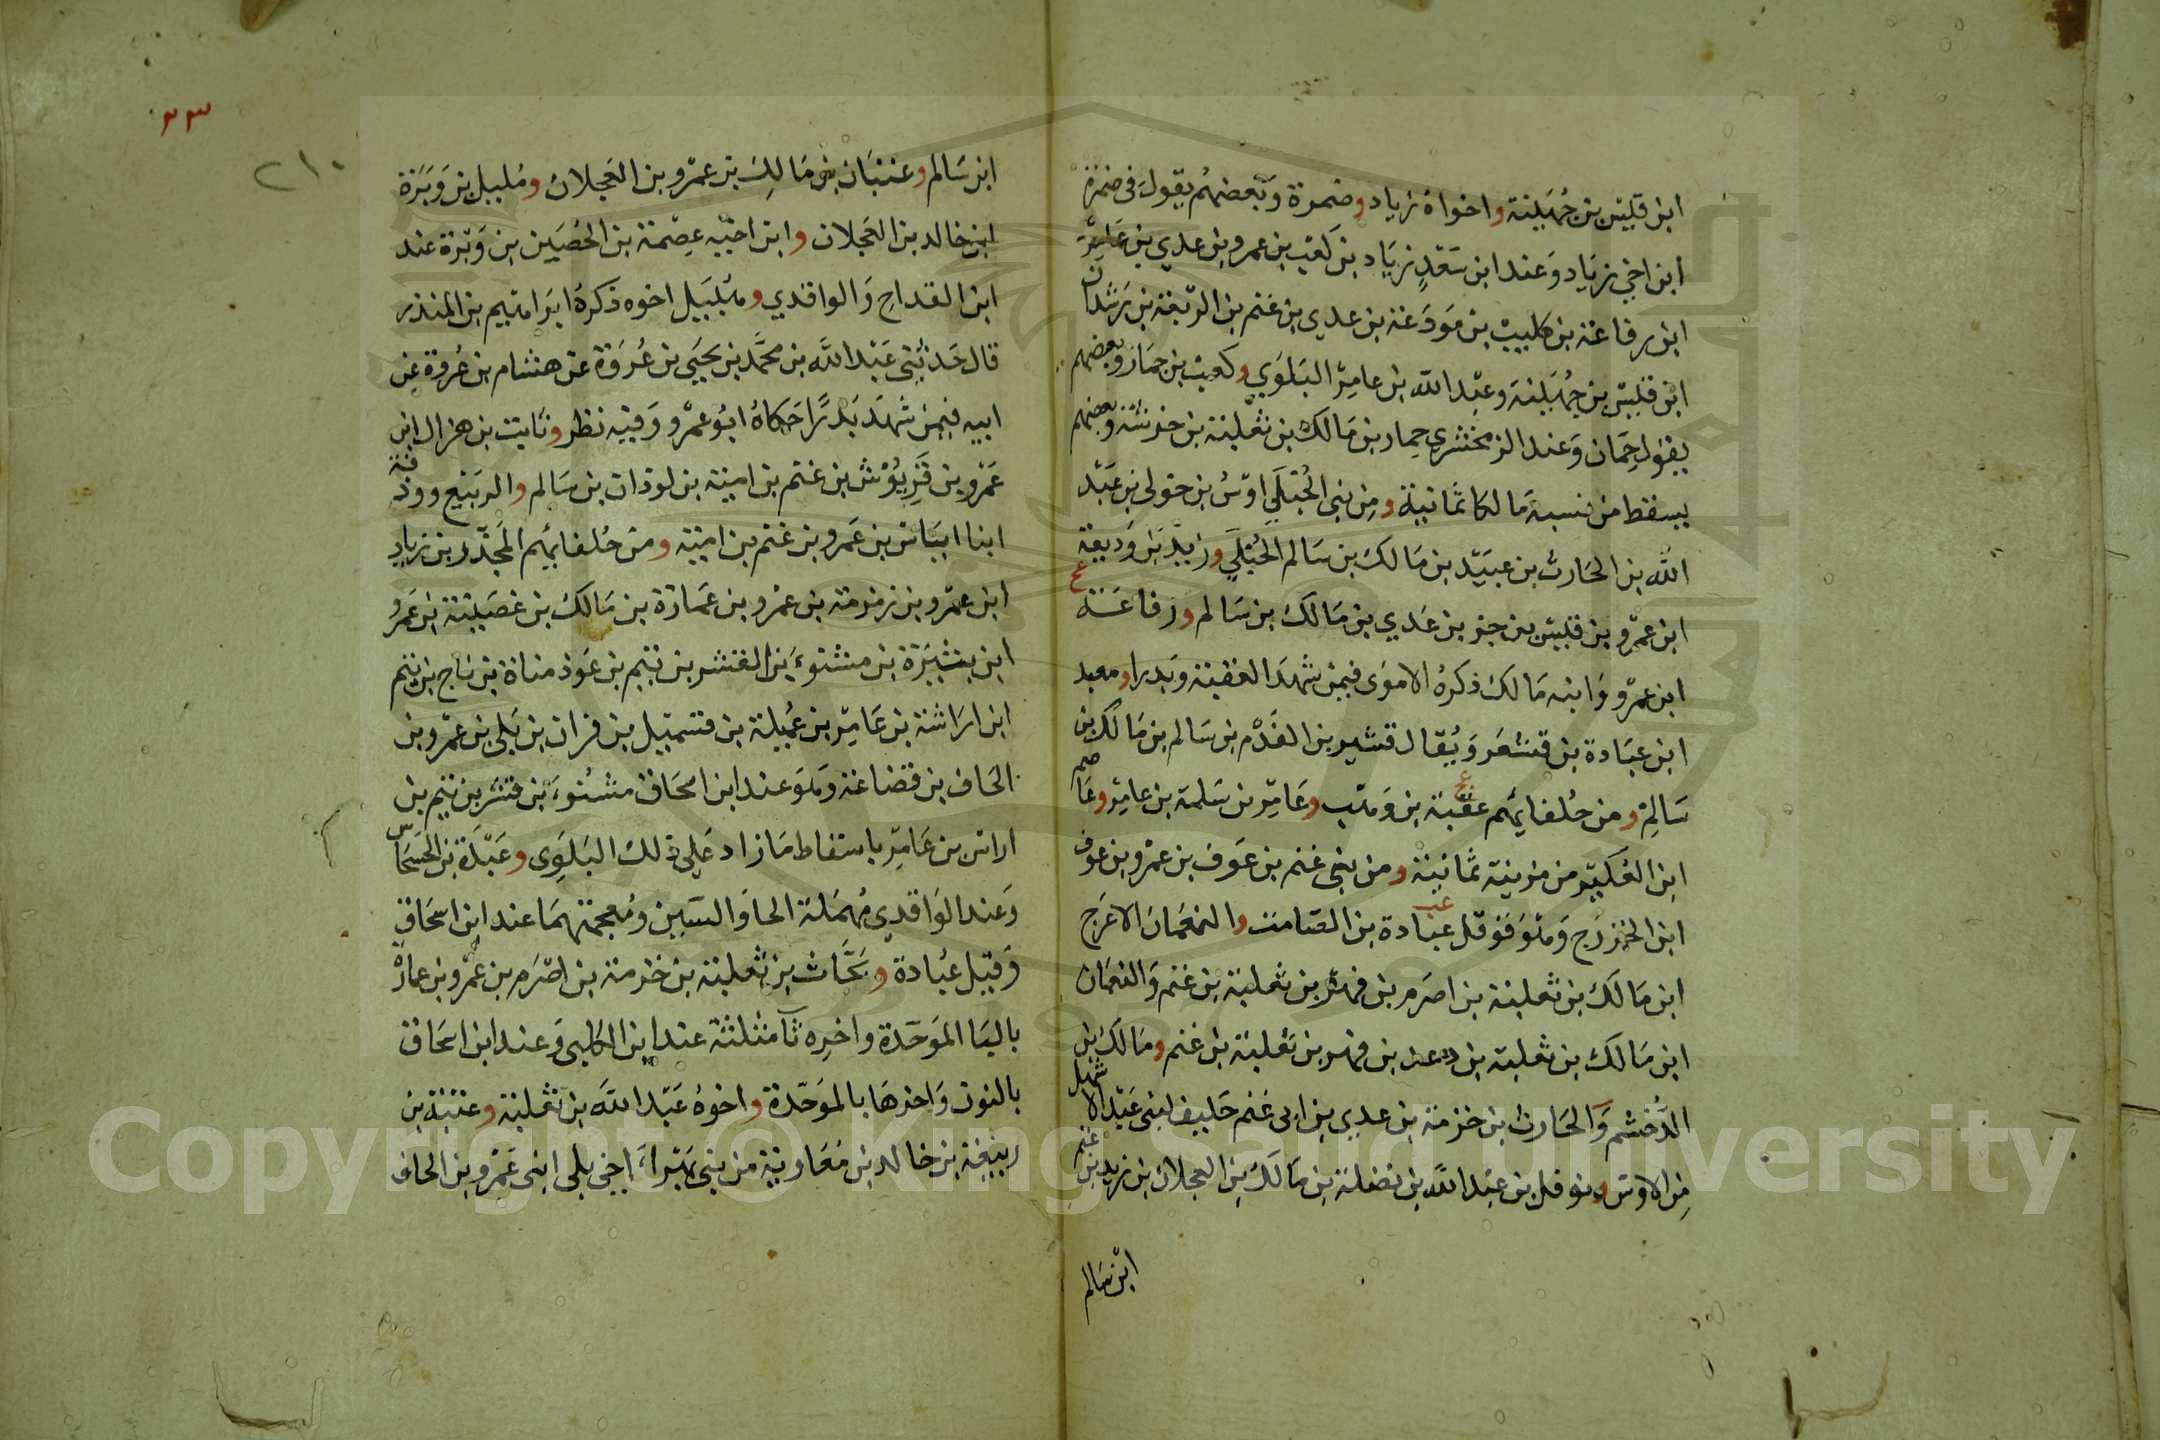 ابن قيس بن جهينة واخواه زياد وضمرة وبعضهم يقول في ضمرة
ابن اخي زياد وعند ابن سعد زياد بن كعب بن عمرو بن عدي بن عامر
ابن رفاعة بن كليب بن مودعة بن عدي بن غنم بن الربعة بن رشدان
ابن قيس بن جهينة وعبد الله بن عامر البلوي وكعب بن جماز وبعضهم
يقول حمان وعند الزمخشري حمار بن مالك بن ثعلبة بن خرشة وبعضهم
يسقط من نسبه مالكا ثمانية ومن بني الحبلي اوس بن خولي بن عبد
الله بن الحارث بن عبيد بن مالك بن سالم الحبلي وزيد بن وديعة
ابن عمرو بن قيس بن جزء بن عدي بن مالك بن سالم ورفاعة
ابن عمرو وابنه مالك ذكره الاموي فيمن شهد العقبة وبدرا ومعبد
ابن عبادة بن قشعر ويقال قشير بن الفدم بن سالم بن مالك بن
سالم ومن حلفايهم عقبة بن وهب وعامر بن سلمة بن عامر وعاصم
ابن العكير من مزينة ثمانية ومن بني غنم بن عوف بن عمرو بن عوف
ابن الخزرج وهو قوقل عبادة بن الصامت والنعمان الاعرج
ابن مالك بن ثعلبة بن اصرم بن فهر بن ثعلبة بن غنم والنعمان
ابن مالك بن ثعلبة بن دعد بن فهر بن ثعلبة بن غنم ومالك بن
الدخشم والحارث بن خزمة بن عدي بن ابي غنم حليف لبني عبد الاشهل
من الاوس ونوفل بن عبد الله بن نضلة بن مالك بن العجلان بن زيد بن غنم
ابن سالم
٣٣
٢١٠
ابن سالم وعتبان بن مالك بن عمرو بن العجلان ومليل بن وبرة
ابن خالد بن العجلان وابن اخيه عصمة بن الحصين بن وبرة عند
ابن القداح والواقدي وهبيل اخوه ذكره ابراهيم بن المنذر
قال حدثني عبد الله بن محمد بن يحيى بن عروة عن هشام بن عروة عن
ابيه فيمن شهد بدرا حكاه ابو عمرو وفيه نظر وثابت بن هزال ابن
عمرو بن قريوش بن غنم بن امية بن لوذان بن سالم والربيع وودفة
ابنا اياس بن عمرو بن غنم بن امية ومن حلفايهم المجذر بن زياد
ابن عمرو بن زمزمة بن عمرو بن عمارة بن مالك بن غصينة بن عمرو
ابن بثيرة بن مشنوء بن القشر بن تيم بن عوذ مناة بن ناج بن تيم
ابن اراشة بن عامر بن عميلة بن قسميل بن فران بن بلي بن عمرو بن
الحاف بن قضاعة وهو عند ابن اسحاق مشنوء بن قشر بن تيم بن
اراش بن عامر باسقاط ما زاد على ذلك البلوي وعبدة بن الحسحاس
وعند الواقدي مهملة الحا والسين ومعجمتهما عند ابن اسحاق
وقيل عبادة وبحاث بن ثعلبة بن خزمة بن اصرم بن عمرو بن عمارة
باليا الموحدة واخره ثا مثلثة عند ابن الكلبي وعند ابن اسحاق
بالنون واخرها بالموحدة واخوه عبد الله بن ثعلبة وعتبة بن
ربيعة بن خالد بن معاوية من بني بهراء اخي بلي ابني عمرو بن الحاف
Copyright © King Saud University